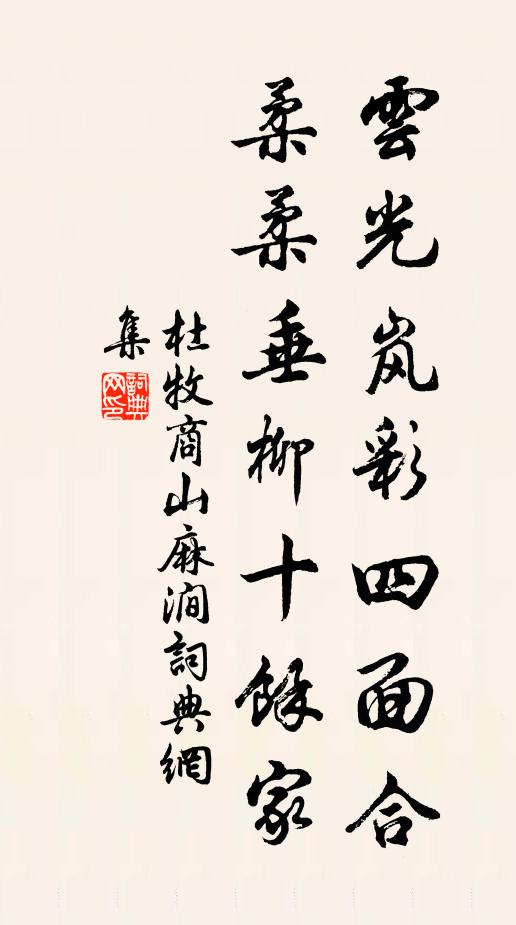 雲光岚彩四面合
柔柔垂柳十餘家
杜牧商山麻澗詞典網
集
詞典
网印